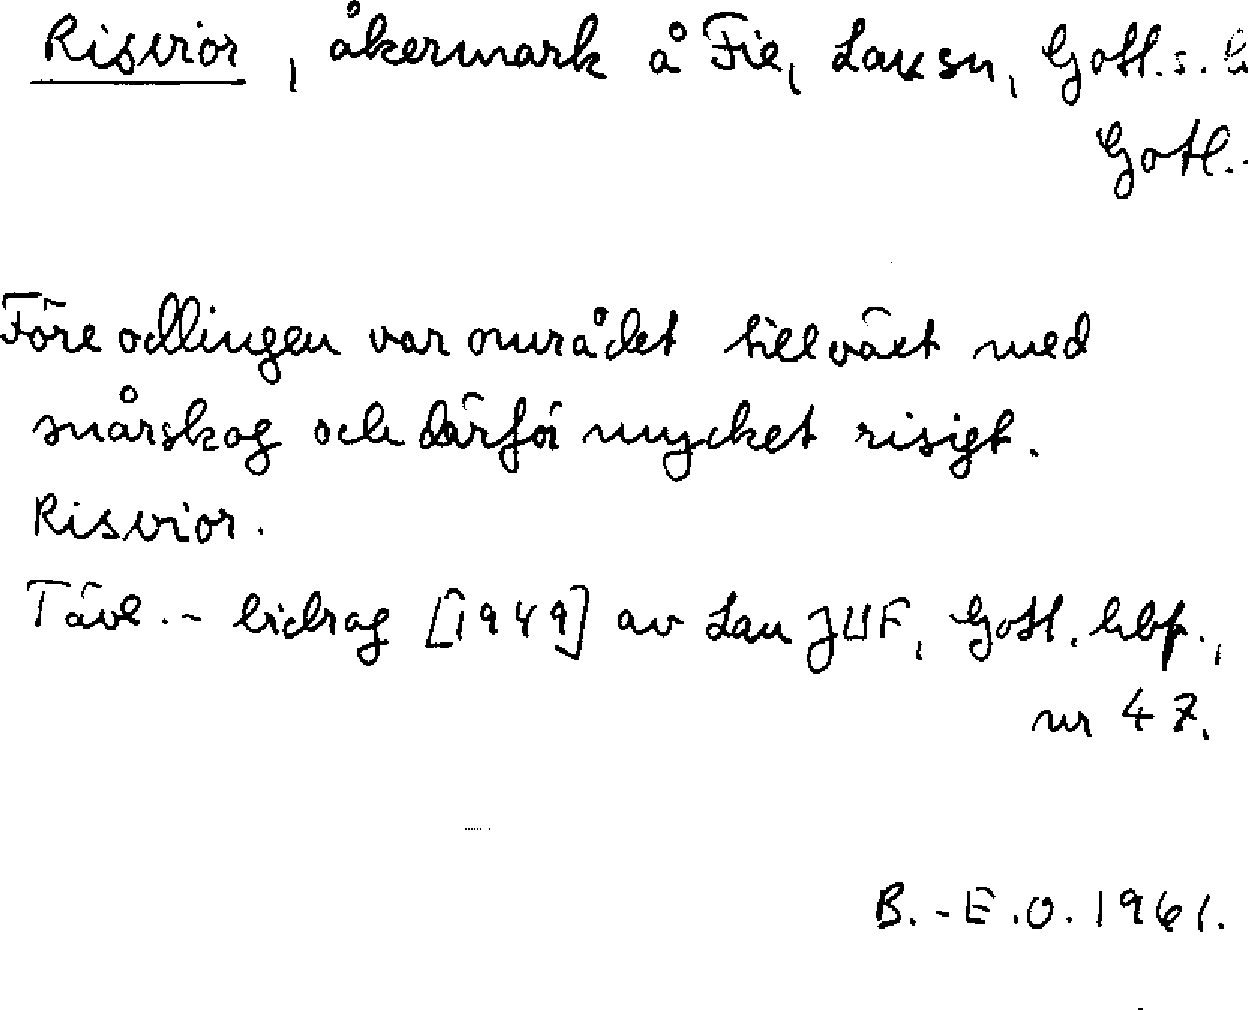 Risvior, åkermark å Fie, Lau sn, Gotl. s. h
Gotl.
Före odlingen var området tillväxt med
snårskog och därför mycket risigt.
Risvior.
Tävl.- bidrag [1949] av Lau JUF, Gotl. hbf.,
nr 47.
B.-E.O. 1961.